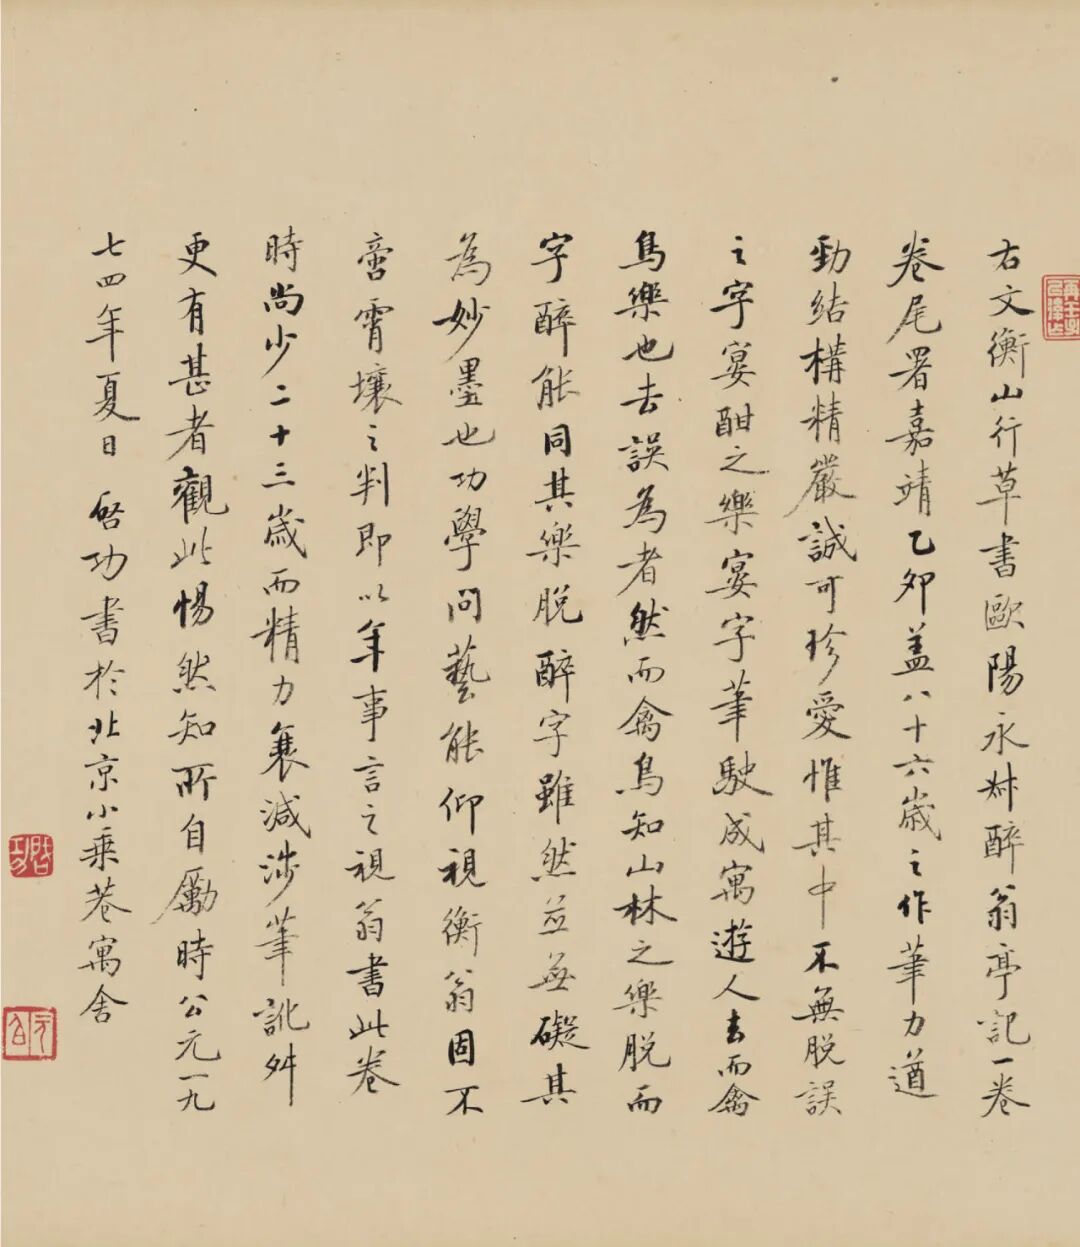 右文衡山行草書歐陽永叔醉翁亭記一卷
卷尾署嘉靖乙卯蓋八十六歲之作筆力遒
勁結構精嚴誠可珍愛惟其中不無脫誤
之字宴酣之樂宴字筆駛成寓遊人去而禽
鳥樂也去誤為者然而禽鳥知山林之樂脫而
字醉能同其樂脫醉字雖然並無礙其
為妙墨也功學問藝能仰視衡翁固不
啻霄壤之判即以年事言之視翁書此卷
時尚少二十三歲而精力衰減涉筆訛舛
更有甚者觀此惕然知所自勵時公元一九
七四年夏日 啓功書於北京小乘巷寓舍
啓功
元白